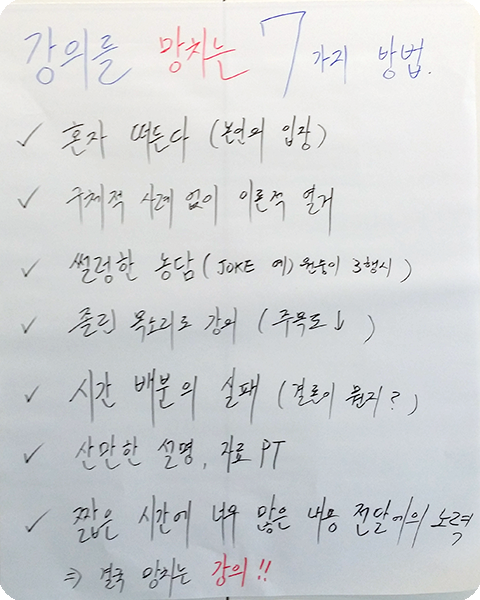 강의를 망치는 7가지 방법.
✓ 혼자 떠든다 (본인의 입장)
✓ 구체적 사례 없이 이론적 열거
✓ 썰렁한 농담 (JOKE 예) 원숭이 3행시)
✓ 졸린 목소리로 강의 (주목도↓)
✓ 시간 배분의 실패 (결론이 뭔지?)
✓ 산만한 설명, 자료 PT
✓ 짧은 시간에 너무 많은 내용 전달에의 노력
⇒ 결국 망치는 강의!!